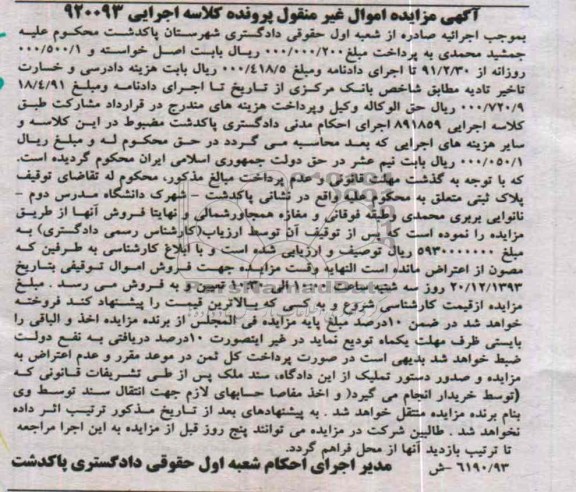 آگهی مزایده اموال غیر منقول پرونده کلاسه اجرایی ۹۲۰۰۹۳
بموجب اجرائیه صادره از شعبه اول حقوقی دادگستری شهرستان پاکدشت محکوم علیه
جمشید محمدی به پرداخت مبلغ ۰۰۰/۰۰۰/۲۰۰ ریال بابت اصل خواسته و ۰۰۰/۵۰۰/۱
روزانه از ۹۱/۲/۳۰ تا اجرای دادنامه ومبلغ ۰۰۰/۴۱۸/۵ ریال بابت هزینه دادرسی و خسارت
تاخیر تادیه مطابق شاخص بانک مرکزی از تاریخ تا اجرای دادنامه ومبلغ ۱۸/۴/۹۱
۰۰۰/۷۲۰/۹ ریال حق الوکاله وکیل وپرداخت هزینه های مندرج در قرارداد مشارکت طبق
کلاسه اجرایی ۸۹۱۸۵۹ اجرای احکام مدنی دادگستری پاکدشت مضبوط در این کلاسه و
سایر هزینه های اجرایی که بعد محاسبه می گردد در حق محکوم له و مبلغ ریال
۰۰۰/۰۵۰/۱ ریال بابت نیم عشر در حق دولت جمهوری اسلامی ایران محکوم گردیده است.
که با توجه به گذشت مهلت قانونی و عدم پرداخت مبالغ مذکور، محکوم له تقاضای توقیف
پلاک ثبتی متعلق به محکوم علیه واقع در نشانی پاکدشت – شهرک دانشگاه مدرس دوم –
نانوایی بربری محمدی وطبقه فوقانی و مغازه همجاورشمالی و نهایتا فروش آنها از طریق
مزایده را نموده است که پس از توقیف آن توسط ارزیاب(کارشناس رسمی دادگستری) به
مبلغ ۵۹۳۰۰۰۰۰۰۰ ریال توصیف و ارزیابی شده است و با ابلاغ کارشناسی به طرفین که
مصون از اعتراض مانده است النهایه وقت مزایده جهت فروش اموال توقیفی بتاریخ
۲۰/۱۲/۱۳۹۳ روز سه شنبه ساعت ۱۰ الی تعیین و به فروش می رسد . مبلغ
مزایده ازقیمت کارشناسی شروع و به کسی که بالاترین قیمت را پیشنهاد کند فروخته
خواهد شد در ضمن ۱۰درصد مبلغ پایه مزایده فی المجلس از برنده مزایده اخذ و الباقی را
بایستی ظرف مهلت یکماه تودیع نماید در غیر اینصورت ۱۰درصد دریافتی به نفع دولت
ضبط خواهد شد بدیهی است در صورت پرداخت کل ثمن در موعد مقرر و عدم اعتراض به
مزایده و صدور دستور تملیک از این دادگاه، سند ملک پس از طی تشریفات قانونی که
(توسط خریدار انجام می گیرد( و اخذ مفاصا حسابهای لازم جهت انتقال سند توسط وی
بنام برنده مزایده منتقل خواهد شد . به پیشنهادهای بعد از تاریخ مذکور ترتیب اثر داده
نخواهد شد . طالبین شرکت در مزایده می توانند پنج روز قبل از مزایده به این اجرا مراجعه
تا ترتیب بازدید آنها از محل فراهم گردد.
۶۱۹۰/۹۳ –ش مدیر اجرای احکام شعبه اول حقوقی دادگستری پاکدشت